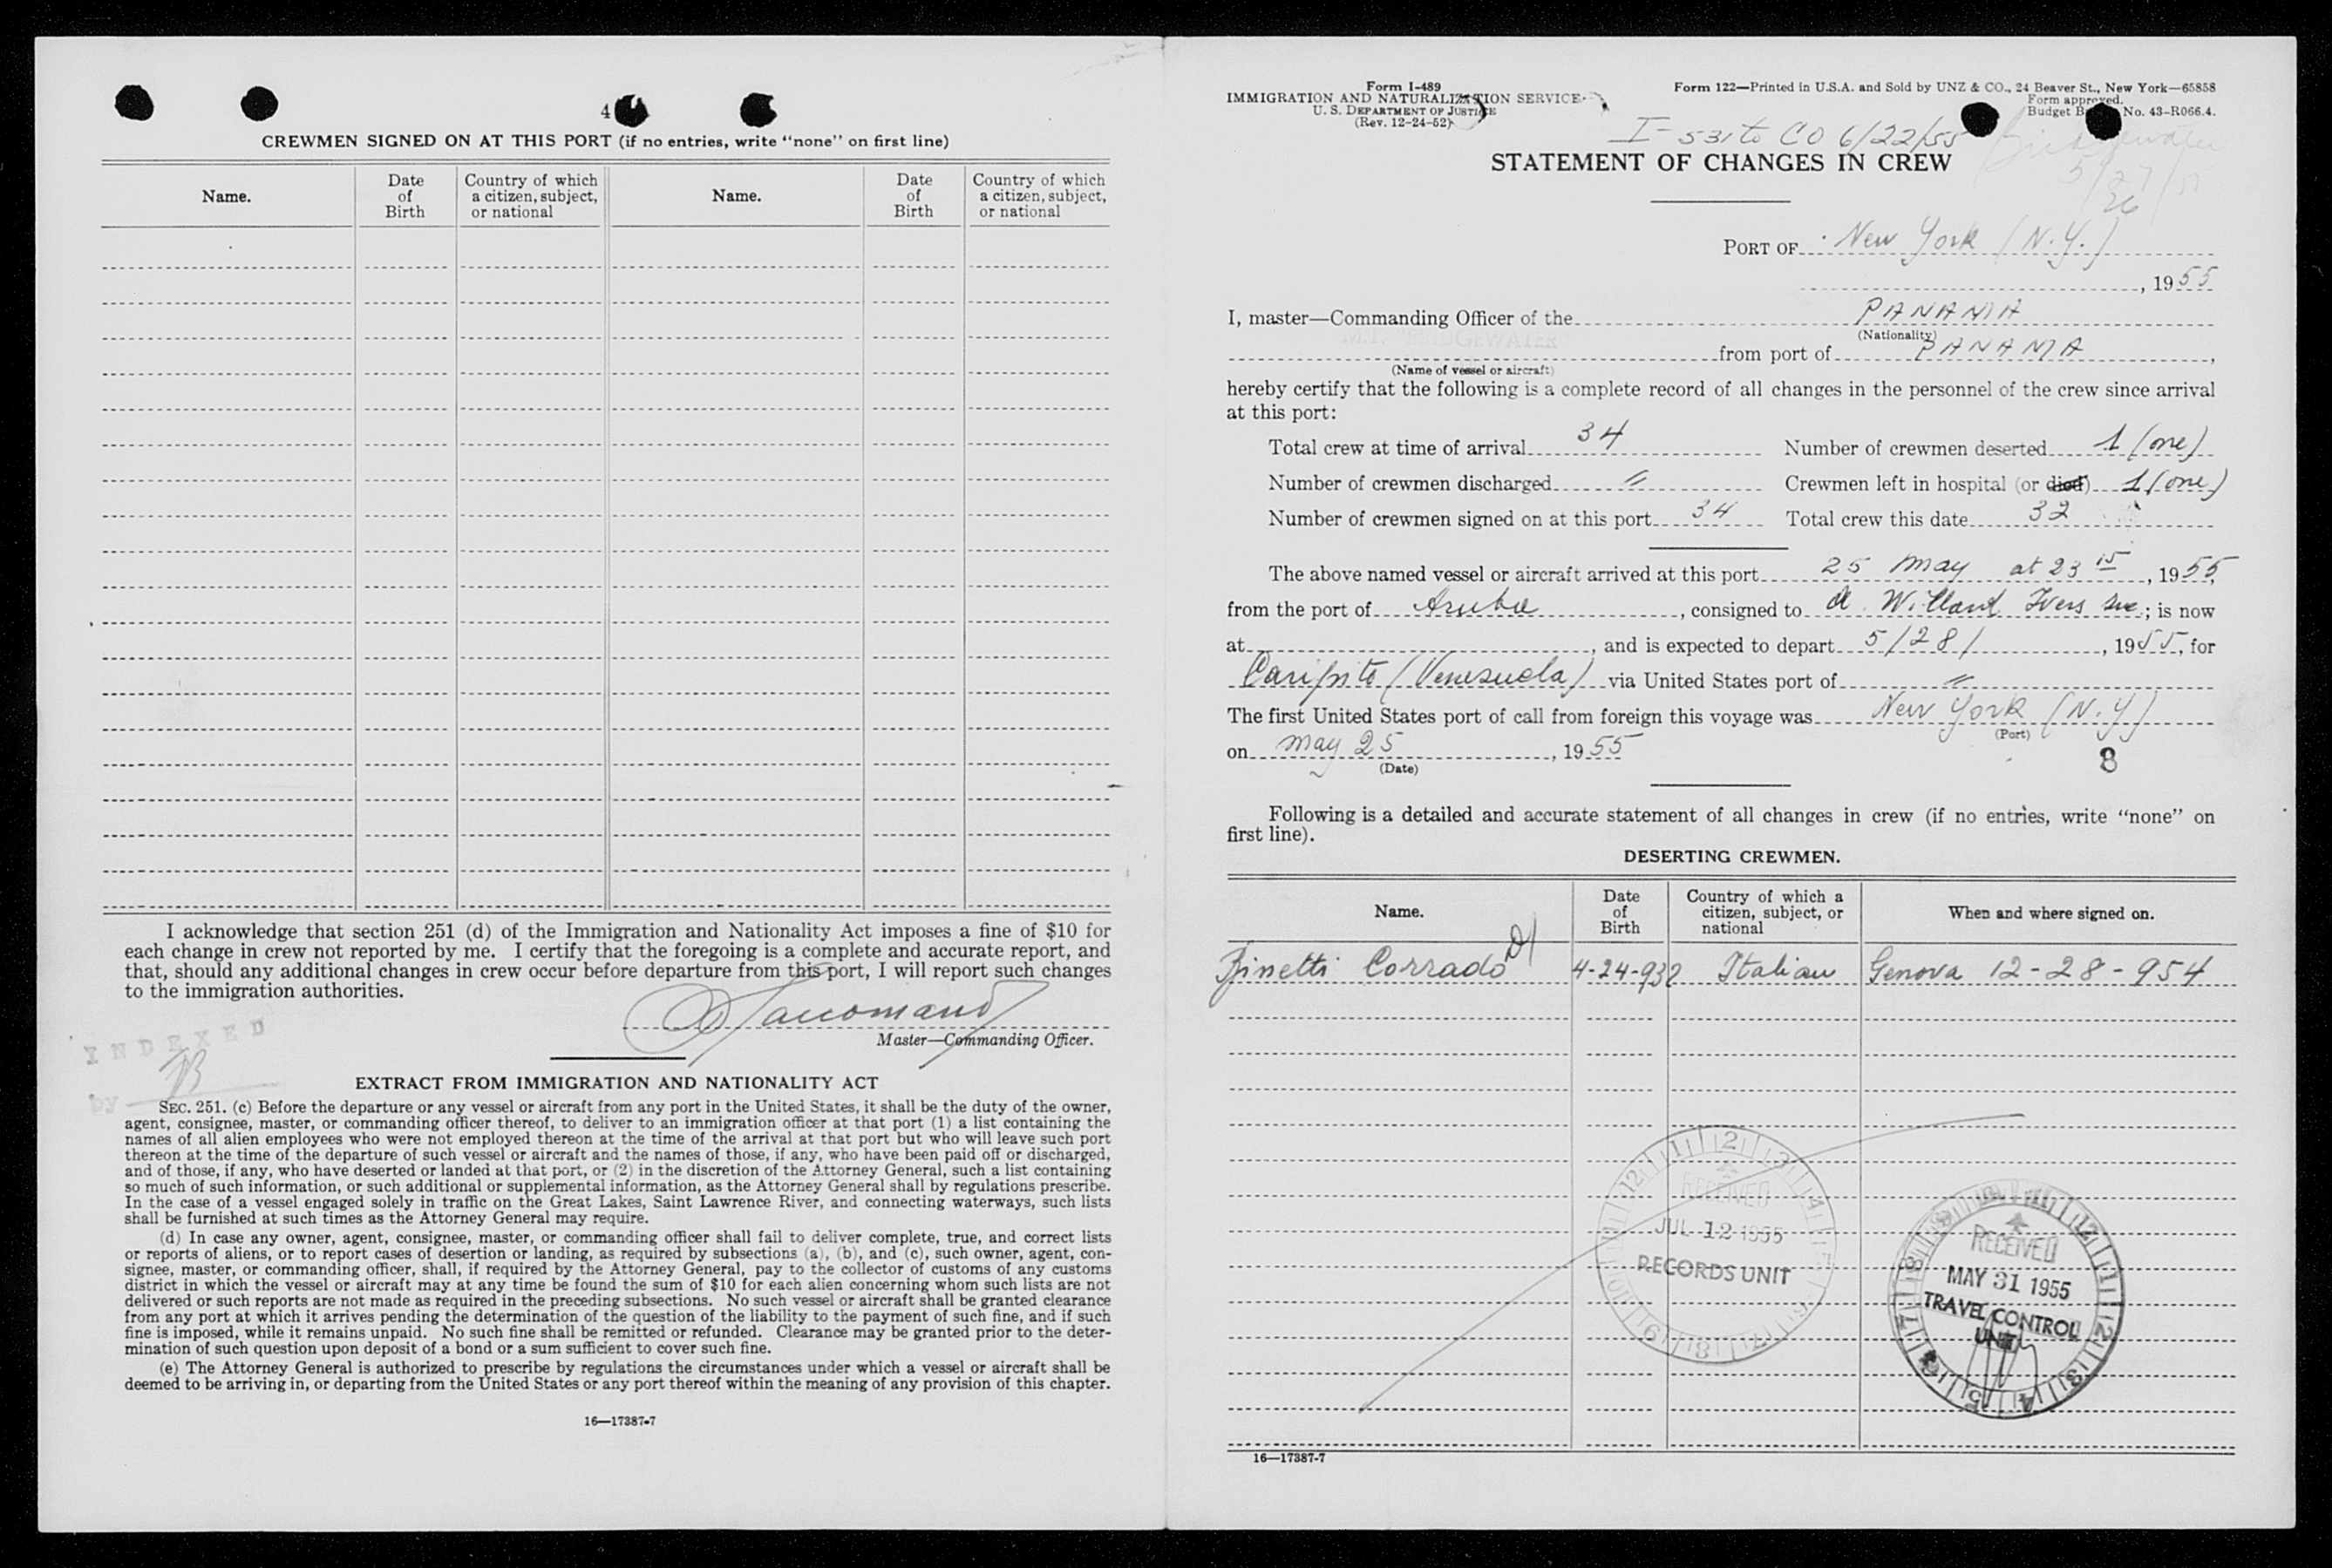 4
CREWMEN SIGNED ON AT THIS PORT (if no entries, write "none" on first line)
Name.
Date of Birth
Country of which a citizen, subject, or national
Name.
Date of Birth
Country of which a citizen, subject, or national
I acknowledge that section 251 (d) of the Immigration and Nationality Act imposes a fine of $10 for
each change in crew not reported by me. I certify that the foregoing is a complete and accurate report, and
that, should any additional changes in crew occur before departure from this port, I will report such changes
to the immigration authorities.
Master—Commanding Officer.
INDEXED
by
EXTRACT FROM IMMIGRATION AND NATIONALITY ACT
SEC. 251. (c) Before the departure or any vessel or aircraft from any port in the United States, it shall be the duty of the owner,
agent, consignee, master, or commanding officer thereof, to deliver to an immigration officer at that port (1) a list containing the
names of all alien employees who were not employed thereon at the time of the arrival at that port but who will leave such port
thereon at the time of the departure of such vessel or aircraft and the names of those, if any, who have been paid off or discharged,
and of those, if any, who have deserted or landed at that port, or (2) in the discretion of the Attorney General, such a list containing
so much of such information, or such additional or supplemental information, as the Attorney General shall by regulations prescribe.
In the case of a vessel engaged solely in traffic on the Great Lakes, Saint Lawrence River, and connecting waterways, such lists
shall be furnished at such times as the Attorney General may require.
(d) In case any owner, agent, consignee, master, or commanding officer shall fail to deliver complete, true, and correct lists
or reports of aliens, or to report cases of desertion or landing, as required by subsections (a), (b), and (c), such owner, agent, con-
signee, master, or commanding officer, shall, if required by the Attorney General, pay to the collector of customs of any customs
district in which the vessel or aircraft may at any time be found the sum of $10 for each alien concerning whom such lists are not
delivered or such reports are not made as required in the preceding subsections. No such vessel or aircraft shall be granted clearance
from any port at which it arrives pending the determination of the question of the liability to the payment of such fine, and if such
fine is imposed, while it remains unpaid. No such fine shall be remitted or refunded. Clearance may be granted prior to the deter-
mination of such question upon deposit of a bond or a sum sufficient to cover such fine.
(e) The Attorney General is authorized to prescribe by regulations the circumstances under which a vessel or aircraft shall be
deemed to be arriving in, or departing from the United States or any port thereof within the meaning of any provision of this chapter.
16—17387-7
Form I-489
IMMIGRATION AND NATURALIZATION SERVICE
U. S. DEPARTMENT OF JUSTICE
(Rev. 12-24-52)
Form 122—Printed in U.S.A. and Sold by UNZ & CO., 24 Beaver St., New York—65858
Form approved.
Budget B No. 43-R066.4.
I-531 to CO 6/22/55
STATEMENT OF CHANGES IN CREW
PORT OF New York (N.Y.)
, 1955
I, master—Commanding Officer of the PANAMA
(Nationality)
M.T. BRIDGEWATER from port of PANAMA,
(Name of vessel or aircraft)
hereby certify that the following is a complete record of all changes in the personnel of the crew since arrival
at this port:
Total crew at time of arrival 34 Number of crewmen deserted 1 (one)
Number of crewmen discharged = Crewmen left in hospital (or died) 1 (one)
Number of crewmen signed on at this port 34 Total crew this date 32
The above named vessel or aircraft arrived at this port 25 May at 23 15, 1955,
from the port of Aruba, consigned to A. Willard Ivers Inc.; is now
at , and is expected to depart 5/28/, 1955, for
Caripito (Venezuela) via United States port of =
The first United States port of call from foreign this voyage was New York (N.Y)
(Port)
on May 25, 1955
(Date)
8
Following is a detailed and accurate statement of all changes in crew (if no entries, write "none" on
first line).
DESERTING CREWMEN.
Name.
Date of Birth
Country of which a citizen, subject, or national
When and where signed on.
Corrado 4-24-932 Italian Genova 12-28-954
RECEIVED
JUL 12 1955
RECORDS UNIT
RECEIVED
MAY 31 1955
TRAVEL CONTROL
UNIT
16—17387-7